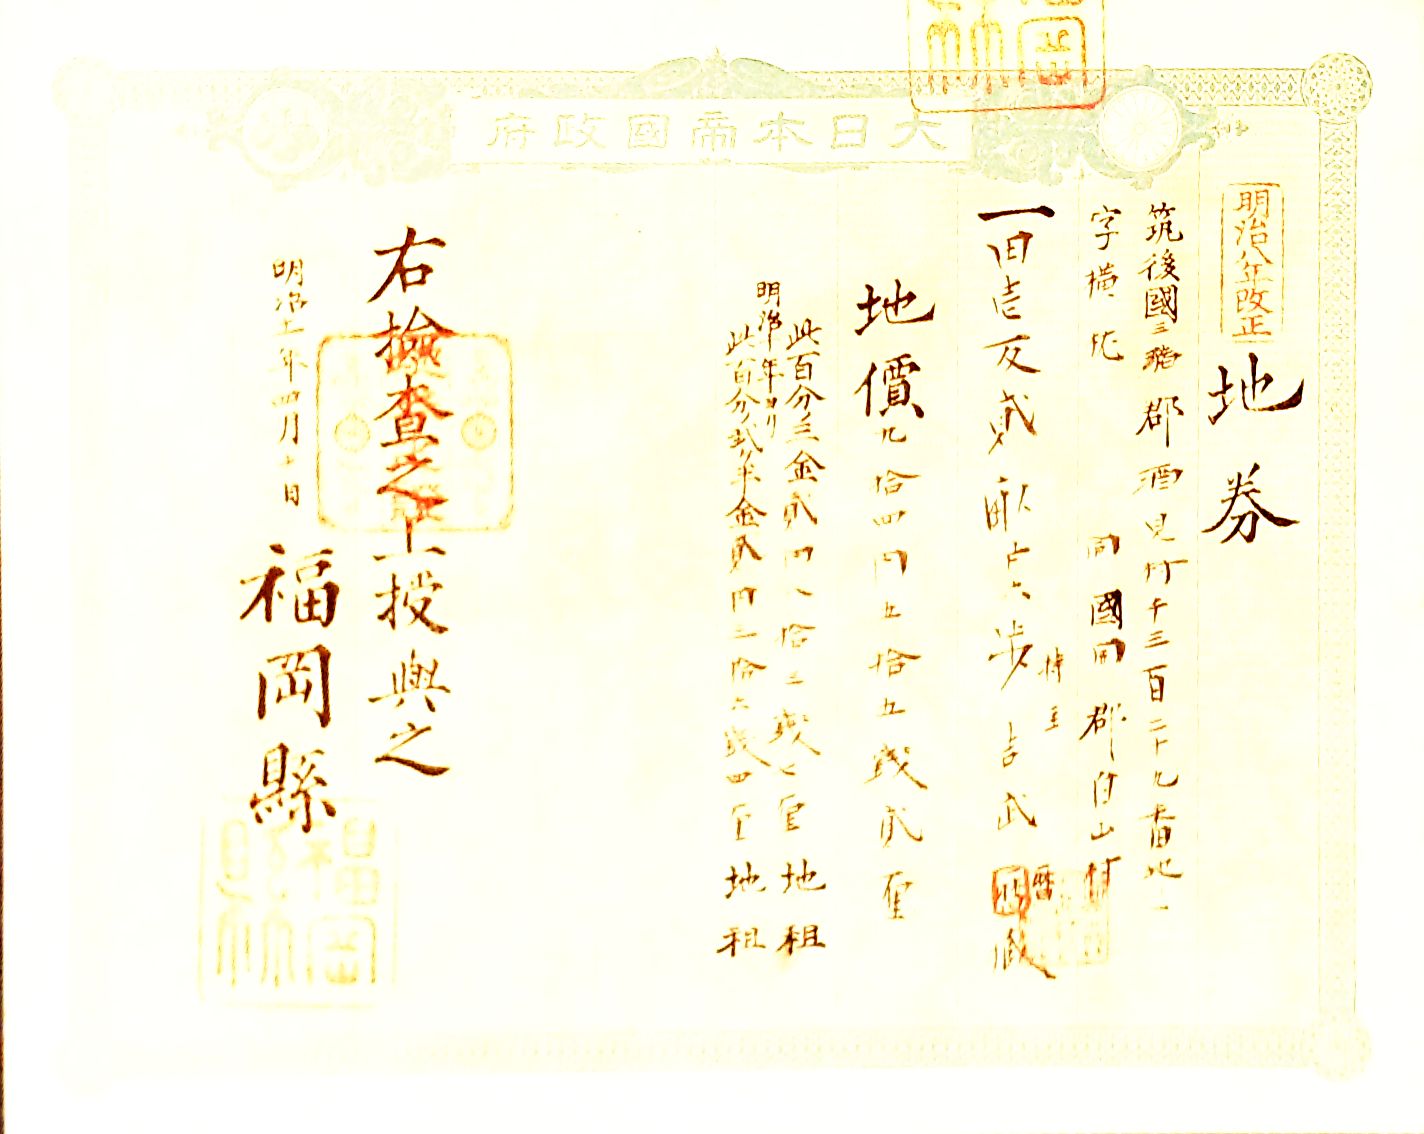 大日本帝國政府
明治八年改正
地券
筑後國三潴郡酒見村千三百二十九番地一
字横
同國同郡白山村
一田壱反貳畝廿六歩
持主
吉武
地價九拾四円五拾五戔貳厘
此百分三金貳円八拾三戔七厘地租
明治十年ヨリ
此百分ノ貳ヶ半金貳円三拾六戔四厘地租
右檢査之上授與之
明治十一年四月十日
福岡縣
福岡縣